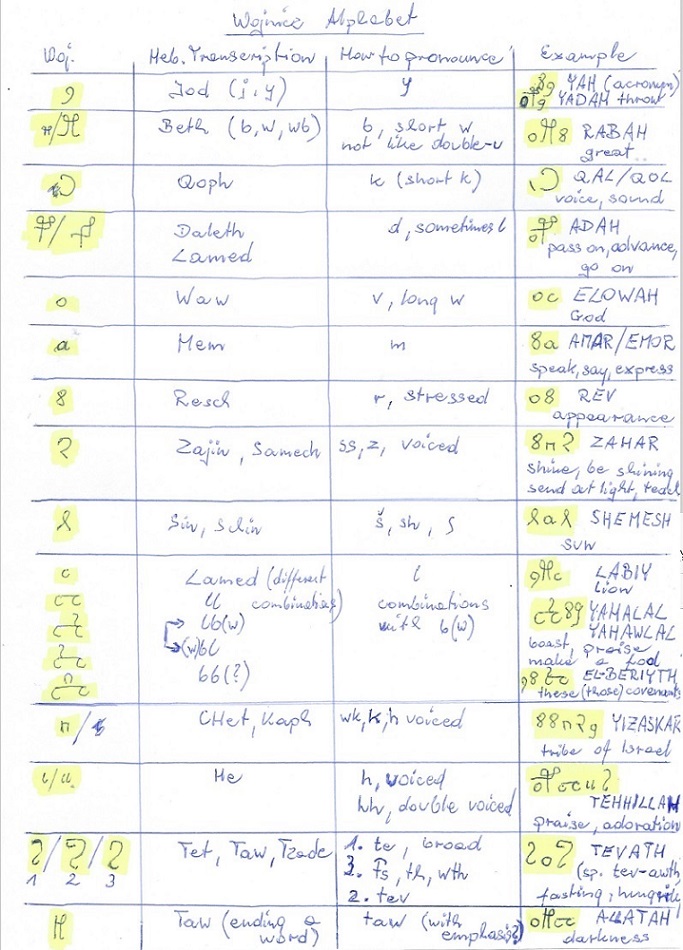 Wojnicz Alphabet
Woj. Heb. Transcription How to pronounce Example
Jod (j, y) y YAH (acronym)
YADAH throw
/ Beth (b, w, wb) b, short w RABAH
not like double-u great..
Qoph k (short k) QAL/QOL
voice, sound
/ Daleth d, sometimes l ADAH
Lamed pass on, advance,
go on
o Waw v, long w oc ELOWAH
God
a Mem m 8a AMAR/EMOR
speak, say, express
8 Resch r, stressed o8 REV
appearance
2 Zajin, Samech ss, z, voiced 8n2 ZAHAR
shine, be shining
send out light, teach
Sin, Schin š, sh, ʃ SHEMESH
sun
c Lamed (different l LABIY
lion
cc ll combinations) combinations YAHALAL
lb(w) with b(w) YAHAWLAL
(w)bl boast, praise
make a fool
bb(?) EL-BERIYTH
these (those) covenants
n/ CHet, Kaph wk, k, h voiced 88n29 YIZASKAR
tribe of Israel
ı/u He h, voiced
hh, double voiced TEHHILLAH
praise, adoration
2/2/2 Tet, Taw, Tzade 1. te, broad 2o2 TEVATH
1 2 3 3. Ts, th, wth (sp. tev-awth
2. tev fasting, hungrily
Taw (ending a taw (with ALLATAH
word) emphasis?) darkness